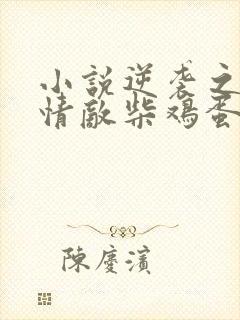 小說逆袭之
情敵柴鸡蛋
陳慶濱